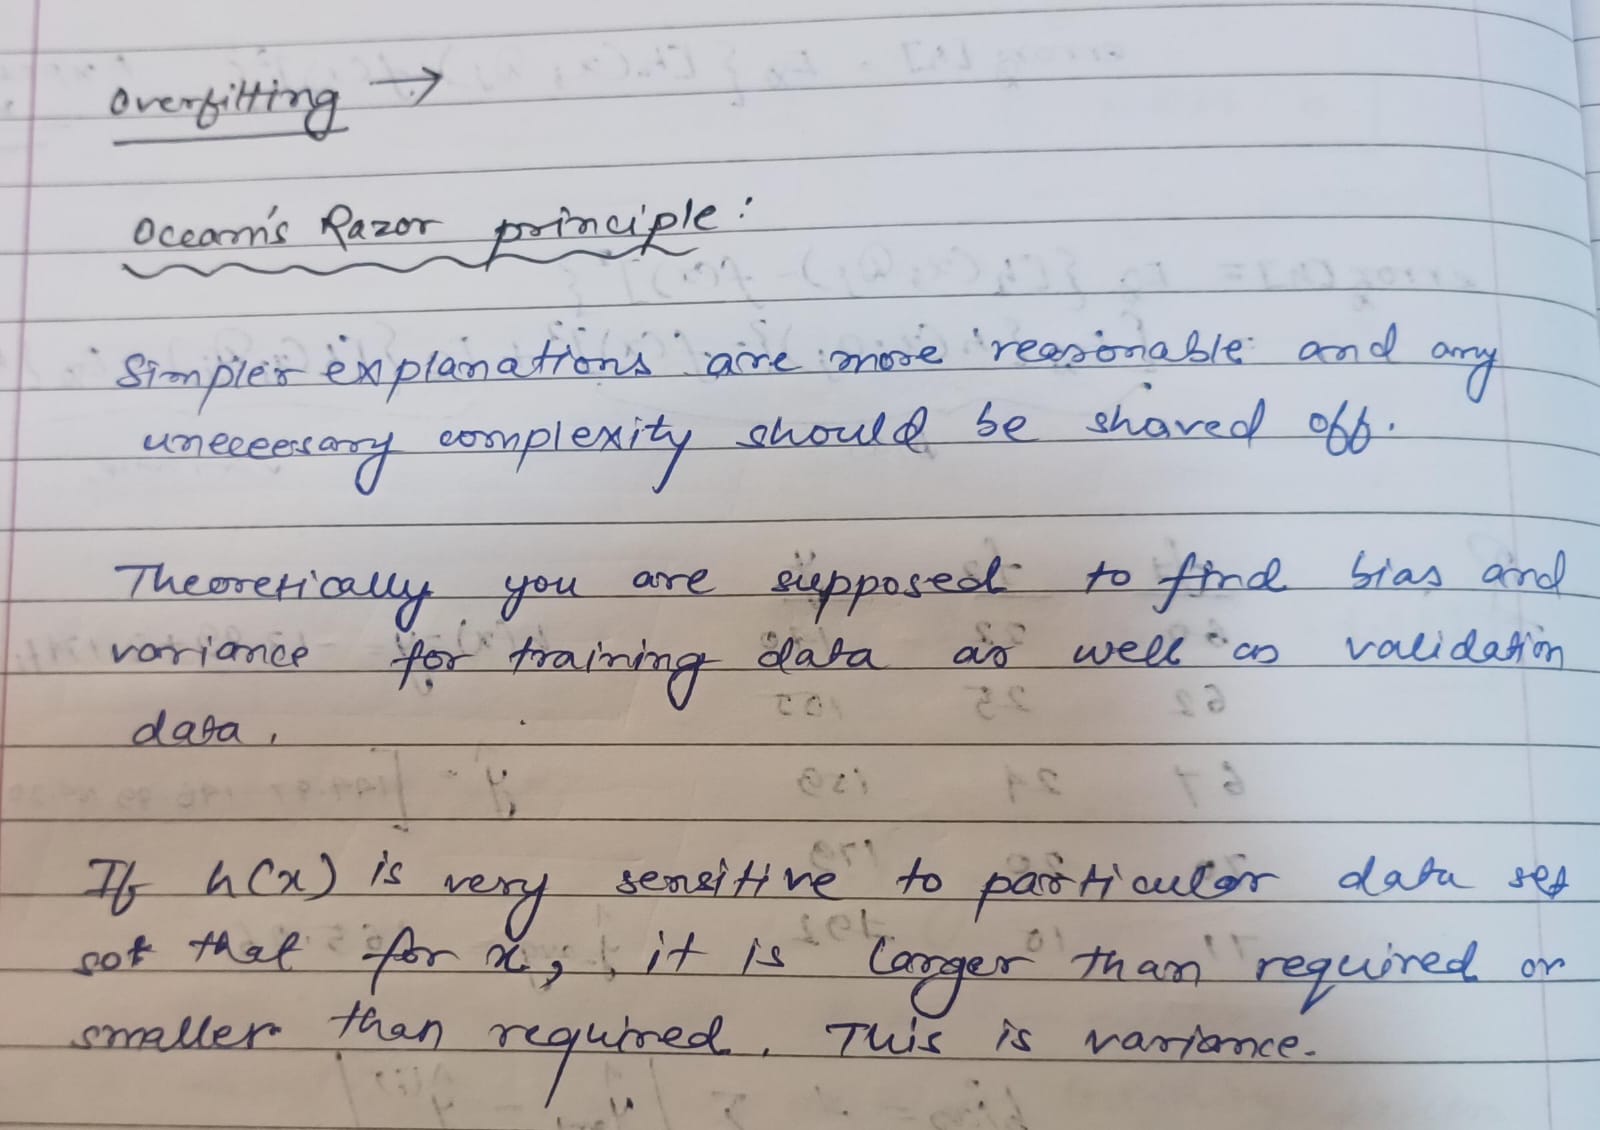 Overfitting →
Occam's Razor principle:
Simpler explanations are more reasonable and any
unecessary complexity should be shaved off.
Theoretically you are supposed to find bias and
variance for training data as well as validation
data.
If h(x) is very sensitive to particular data set
sot that for x, it is larger than required or
smaller than required. This is variance.